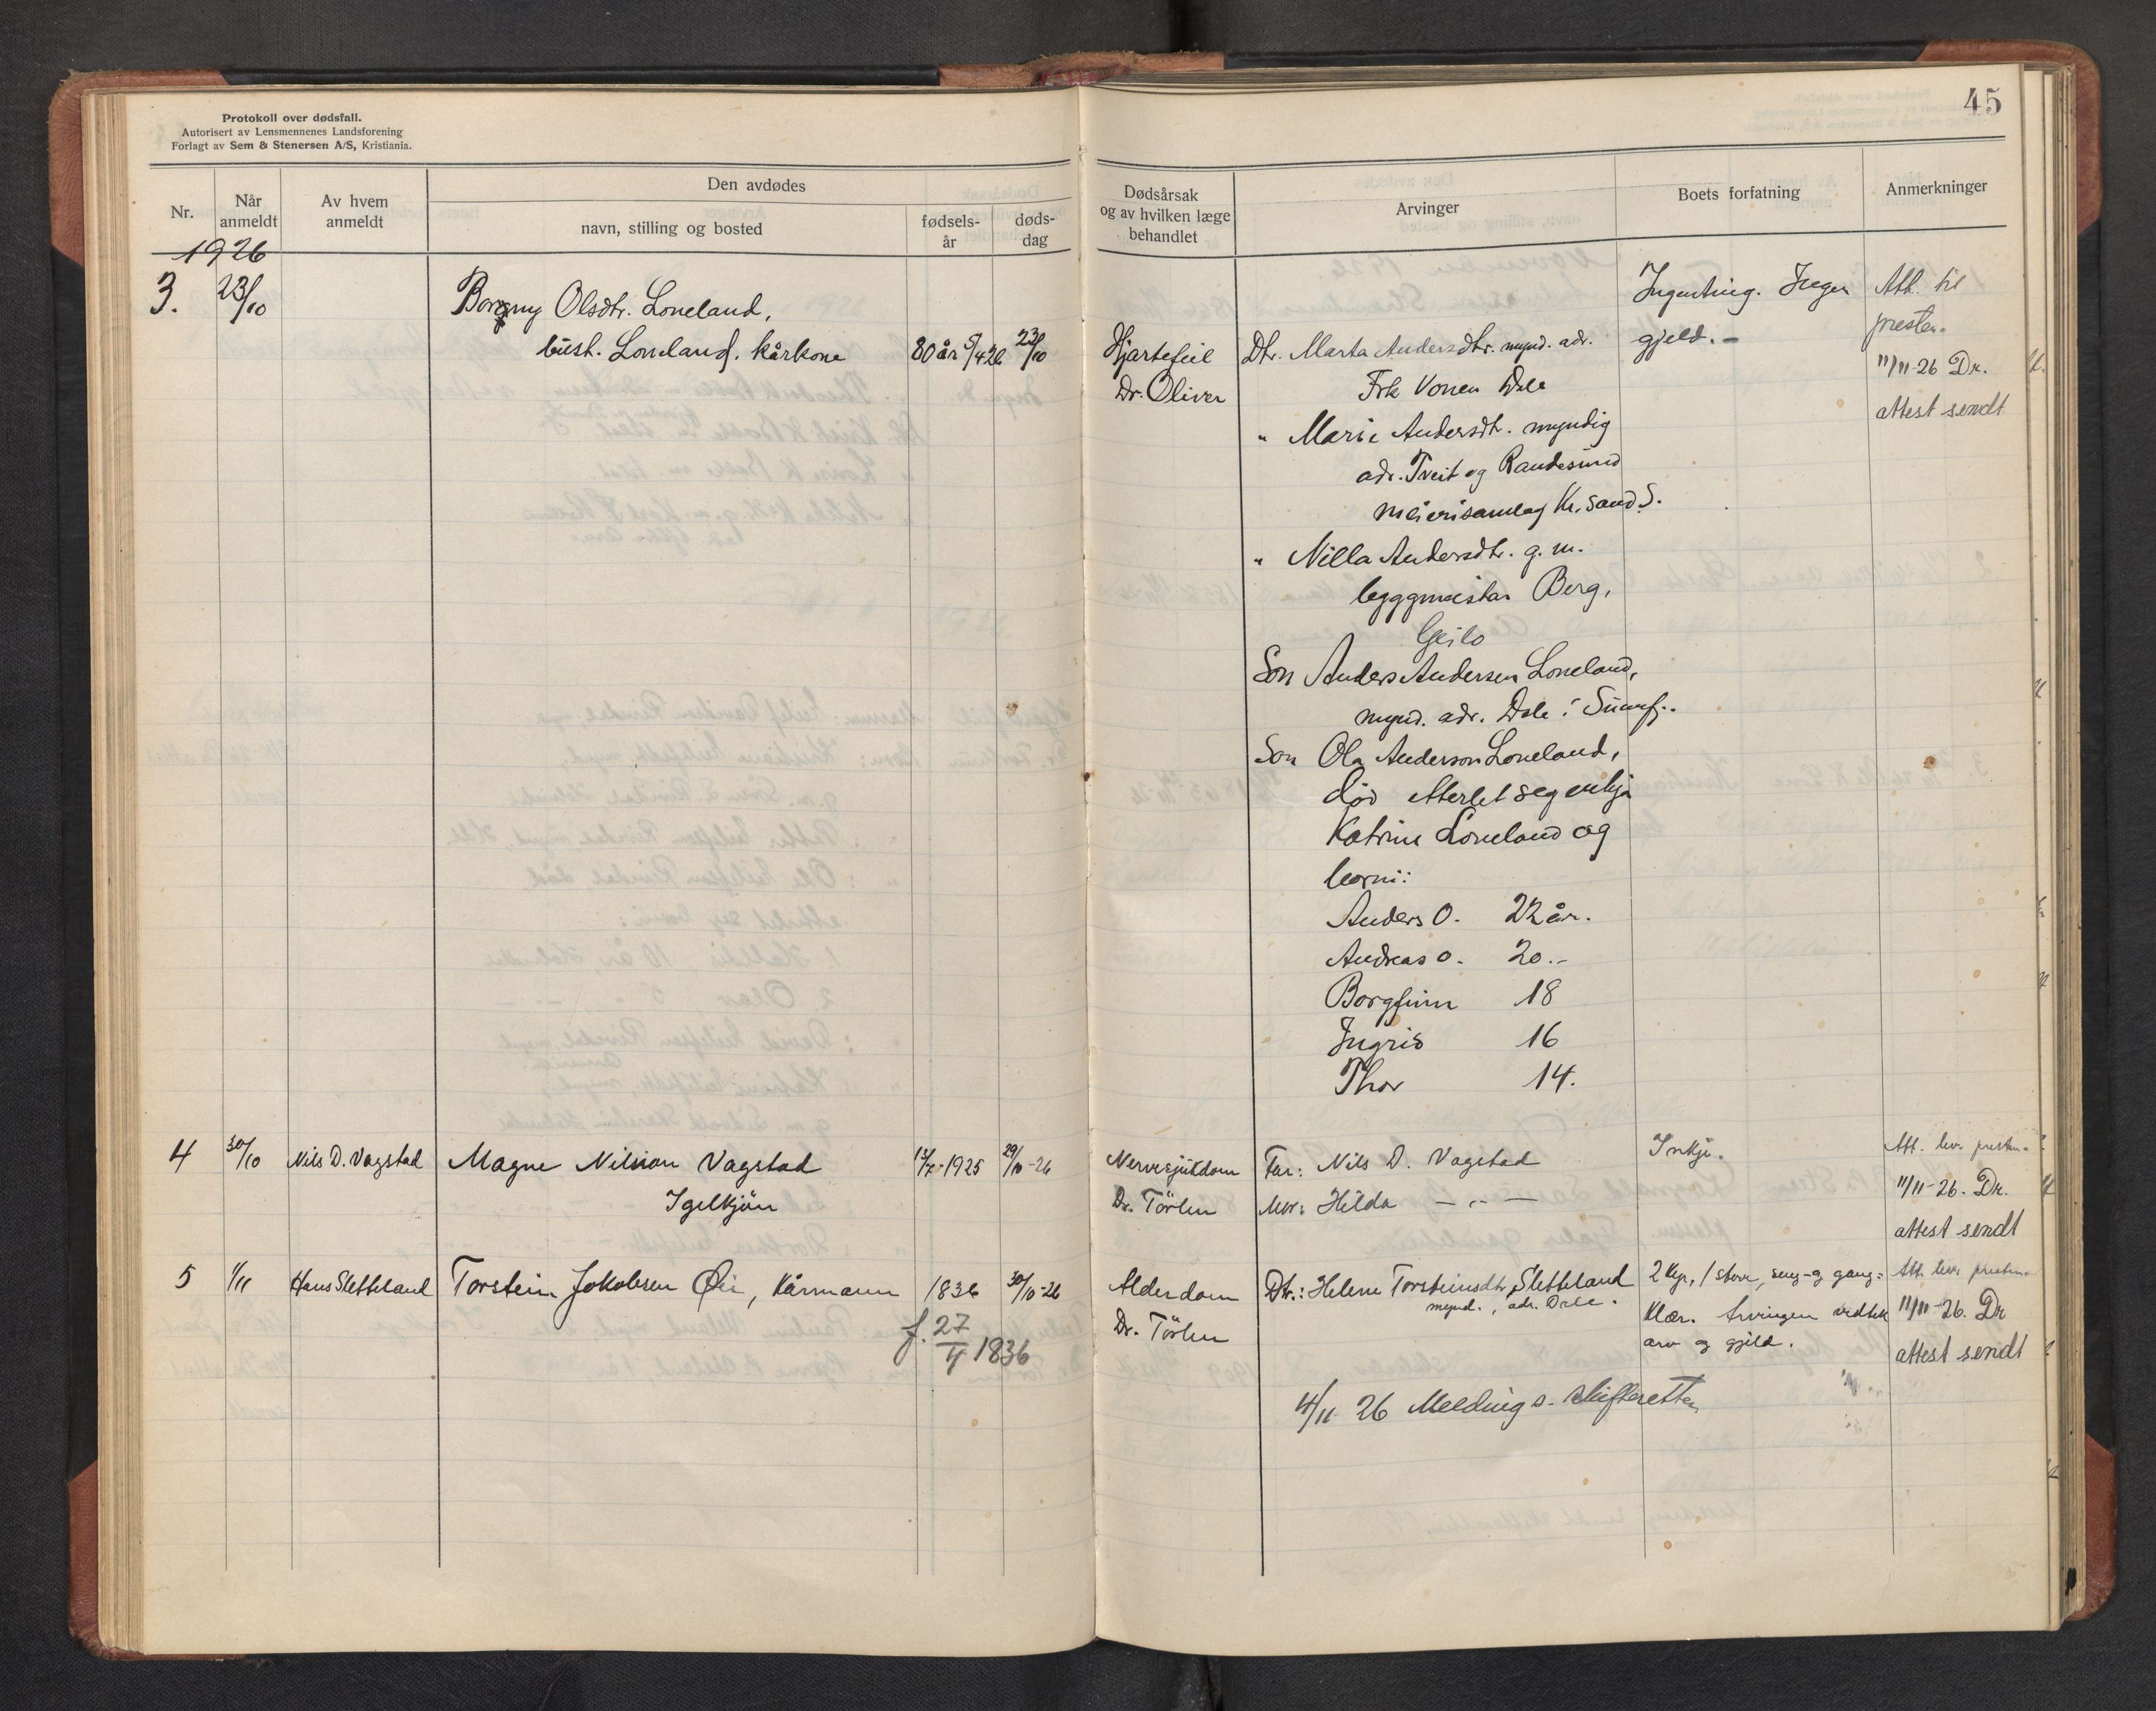 Protokoll over dødsfall.
Autorisert av Lensmennenes Landsforening
Forlagt av Sem & Stenersen A/S, Kristiania.
45
Nr.
Når anmeldt
Av hvem anmeldt
Den avdødes
navn, stilling og bosted
fødsels-år
døds-dag
Dødsårsak og av hvilken læge behandlet
Arvinger
Boets forfatning
Anmerkninger
1926
3. 23/10
Borgny Olsdtr. Loneland,
bust. Loneland. kårkone 80 år 23/10
Hjartefeil
Dr. Oliver
Dtr. Marta Andersdtr. mynd. adr.
Frk Vonen Dale
" Marie Andersdtr. myndig
adr. Tveit og Randesund
meierisamlag Kr. sand S.
" Nilla Andersdtr. g. m.
byggmeistar Berg,
Geilo
Son Anders Andersen Loneland,
mynd. adr. Dale i Sunnfj..
Son Ola Anderson Loneland,
død etterlet seg enkja
Katrine Loneland og
borni:
Anders O. 22 år.
Andreas O. 20.-
Borgfinn 18
Ingrid 16
Thor 14.
Ingenting. Ingen
gjeld. -
Att. til
presten.
11/11-26 Dr.
attest sendt
4 30/10 Nils D. Vagstad Magne Nilsson Vagstad 1925 29/10-26
Igelkjøn
Nervesjukdom
Dr. Tørlen
Far: Nils D. Vagstad
Mor: Hilda — " —
Inkje.
Att. lev. presten.
11/11-26. Dr.
attest sendt
5 1/11 Hans Sletteland Torstein Jakobsen Øir, Kårmann 1836 30/10-26
f. 27/4 1836
Alderdom
Dr. Tørlen
Dtr.: Helene Torsteinsdtr. Sletteland
mynd., adr. Dale.
2 kyr, 1 stove, seng- og gang-
klær. Arvingen vedtek
arv og gjeld.
Att. lev. presten.
11/11-26. Dr
attest sendt
4/11 26 Melding s. skifteretten